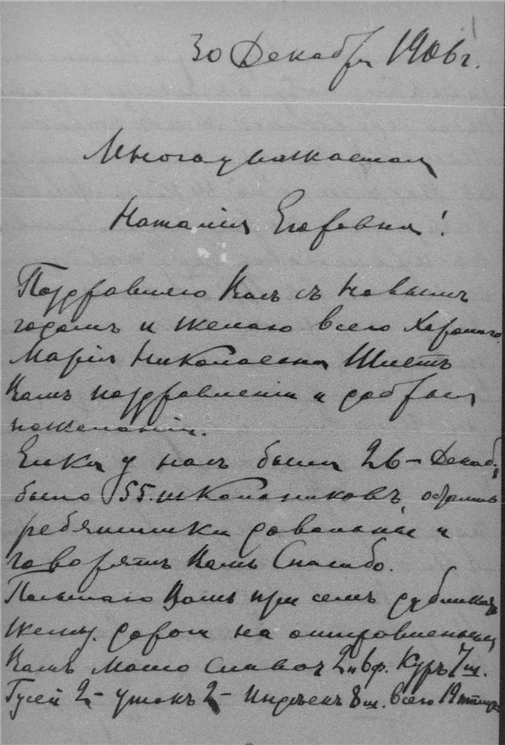 30 Декабря 1906 г.
Многоуважаемая
Наталия Егоровна!
Поздравляю Васъ съ Новымъ
годомъ и желаю всего хорошаго.
Марія Николаевна Шлетъ
Вамъ поздравленіи и добрыя
пожеланіи.
Елка у насъ была 26 – Декаб,
было 55. школьниковъ,
ребятишки довольныи и
говорятъ Вамъ Спасибо.
Посылаю Вамъ при семъ дубликатъ
на отправленныи
Вамъ масло сливоч 2п 6ф. Куръ 7 ш.
Гусей 2 – утокъ 2 – Индѣекъ 8 ш. всего 19 штукъ